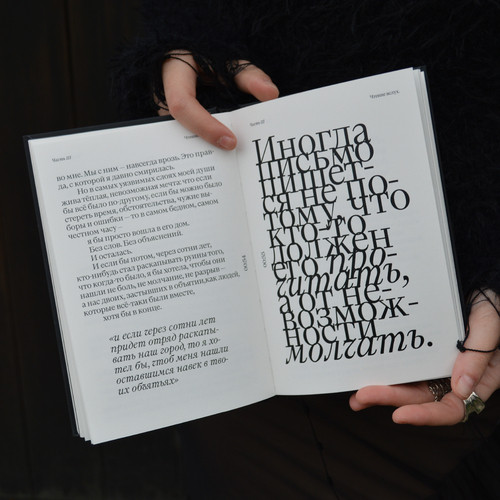 во мне. Мы с ним – навсегда врозь. Это прав-
да, с которой я давно смирилась.
Но в самых уязвимых слоях моей души
жива тёплая, невозможная мечта: что если
бы всё было по-другому, если бы можно было
стереть время, обстоятельства, чужие вы-
боры и ошибки – то в самом бедном, самом
честном часу –
я бы просто вошла в его дом.
Без слов. Без объяснений.
И осталась.
И если бы потом, через сотни лет,
кто-нибудь стал раскапывать руины того,
что когда-то было, я бы хотела, чтобы они
нашли не боль, не молчание, не разрыв –
а нас двоих, застывших в объятиях, как людей,
которые всё-таки были вместе,
хотя бы в конце.
«и если через сотни лет
придет отряд раскапы-
вать наш город, то я хо-
тел бы, чтоб меня нашли
оставшимся навек в тво-
их объятьях»
Иногда
письмо
пишет-
ся не по-
тому, что
кто-то
должен
его про-
читать,
а от не-
возмож-
ности
молчать.